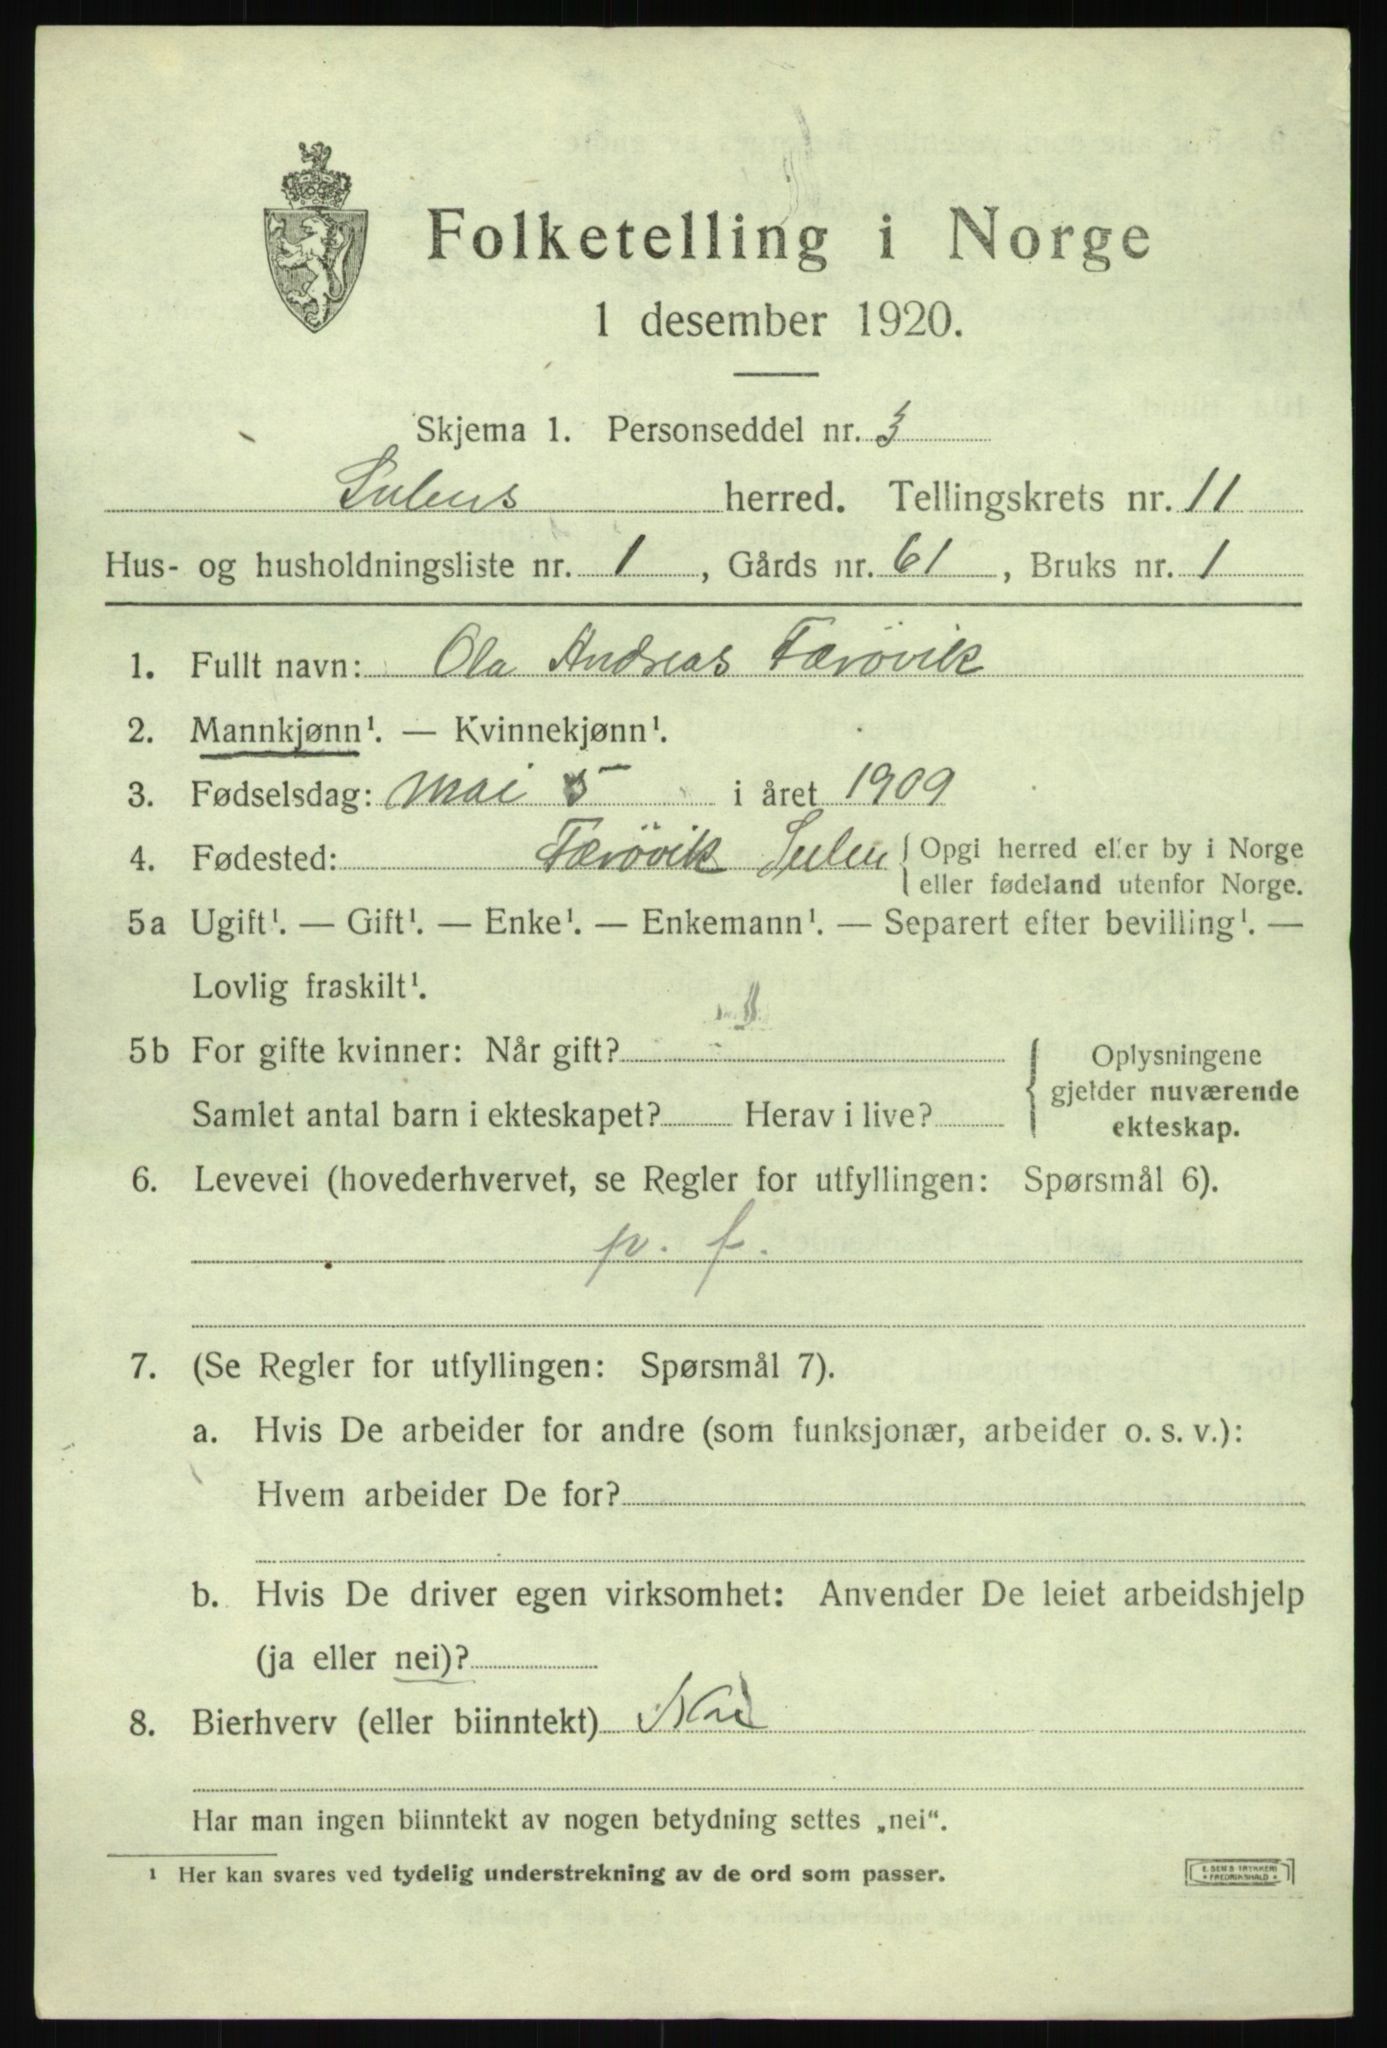 Folketelling i Norge
1 desember 1920.
Skjema 1. Personseddel nr. 3
Sulens herred. Tellingskrets nr. 11
Hus- og husholdningsliste nr. 1, Gårds nr. 61, Bruks nr. 1
1. Fullt navn: Ola Andreas Færøvik
2. Mannkjønn¹. — Kvinnekjønn¹.
3. Fødselsdag: Mai 5 i året 1909
4. Fødested: Færøvik Sulen { Opgi herred eller by i Norge
eller fødeland utenfor Norge.
5a Ugift¹. — Gift¹. — Enke¹. — Enkemann¹. — Separert efter bevilling¹. —
Lovlig fraskilt¹.
5b For gifte kvinner: Når gift?
Samlet antal barn i ekteskapet? Herav i live?
{ Oplysningene
gjelder nuværende
ekteskap.
6. Levevei (hovederhvervet, se Regler for utfyllingen: Spørsmål 6).
p. f.
7. (Se Regler for utfyllingen: Spørsmål 7).
a. Hvis De arbeider for andre (som funksjonær, arbeider o. s. v.):
Hvem arbeider De for?
b. Hvis De driver egen virksomhet: Anvender De leiet arbeidshjelp
(ja eller nei)?
8. Bierhverv (eller biinntekt) Nei
Har man ingen biinntekt av nogen betydning settes „nei“.
¹ Her kan svares ved tydelig understrekning av de ord som passer.
E. SEM'S TRYKKERI
• FREDRIKSHALD •